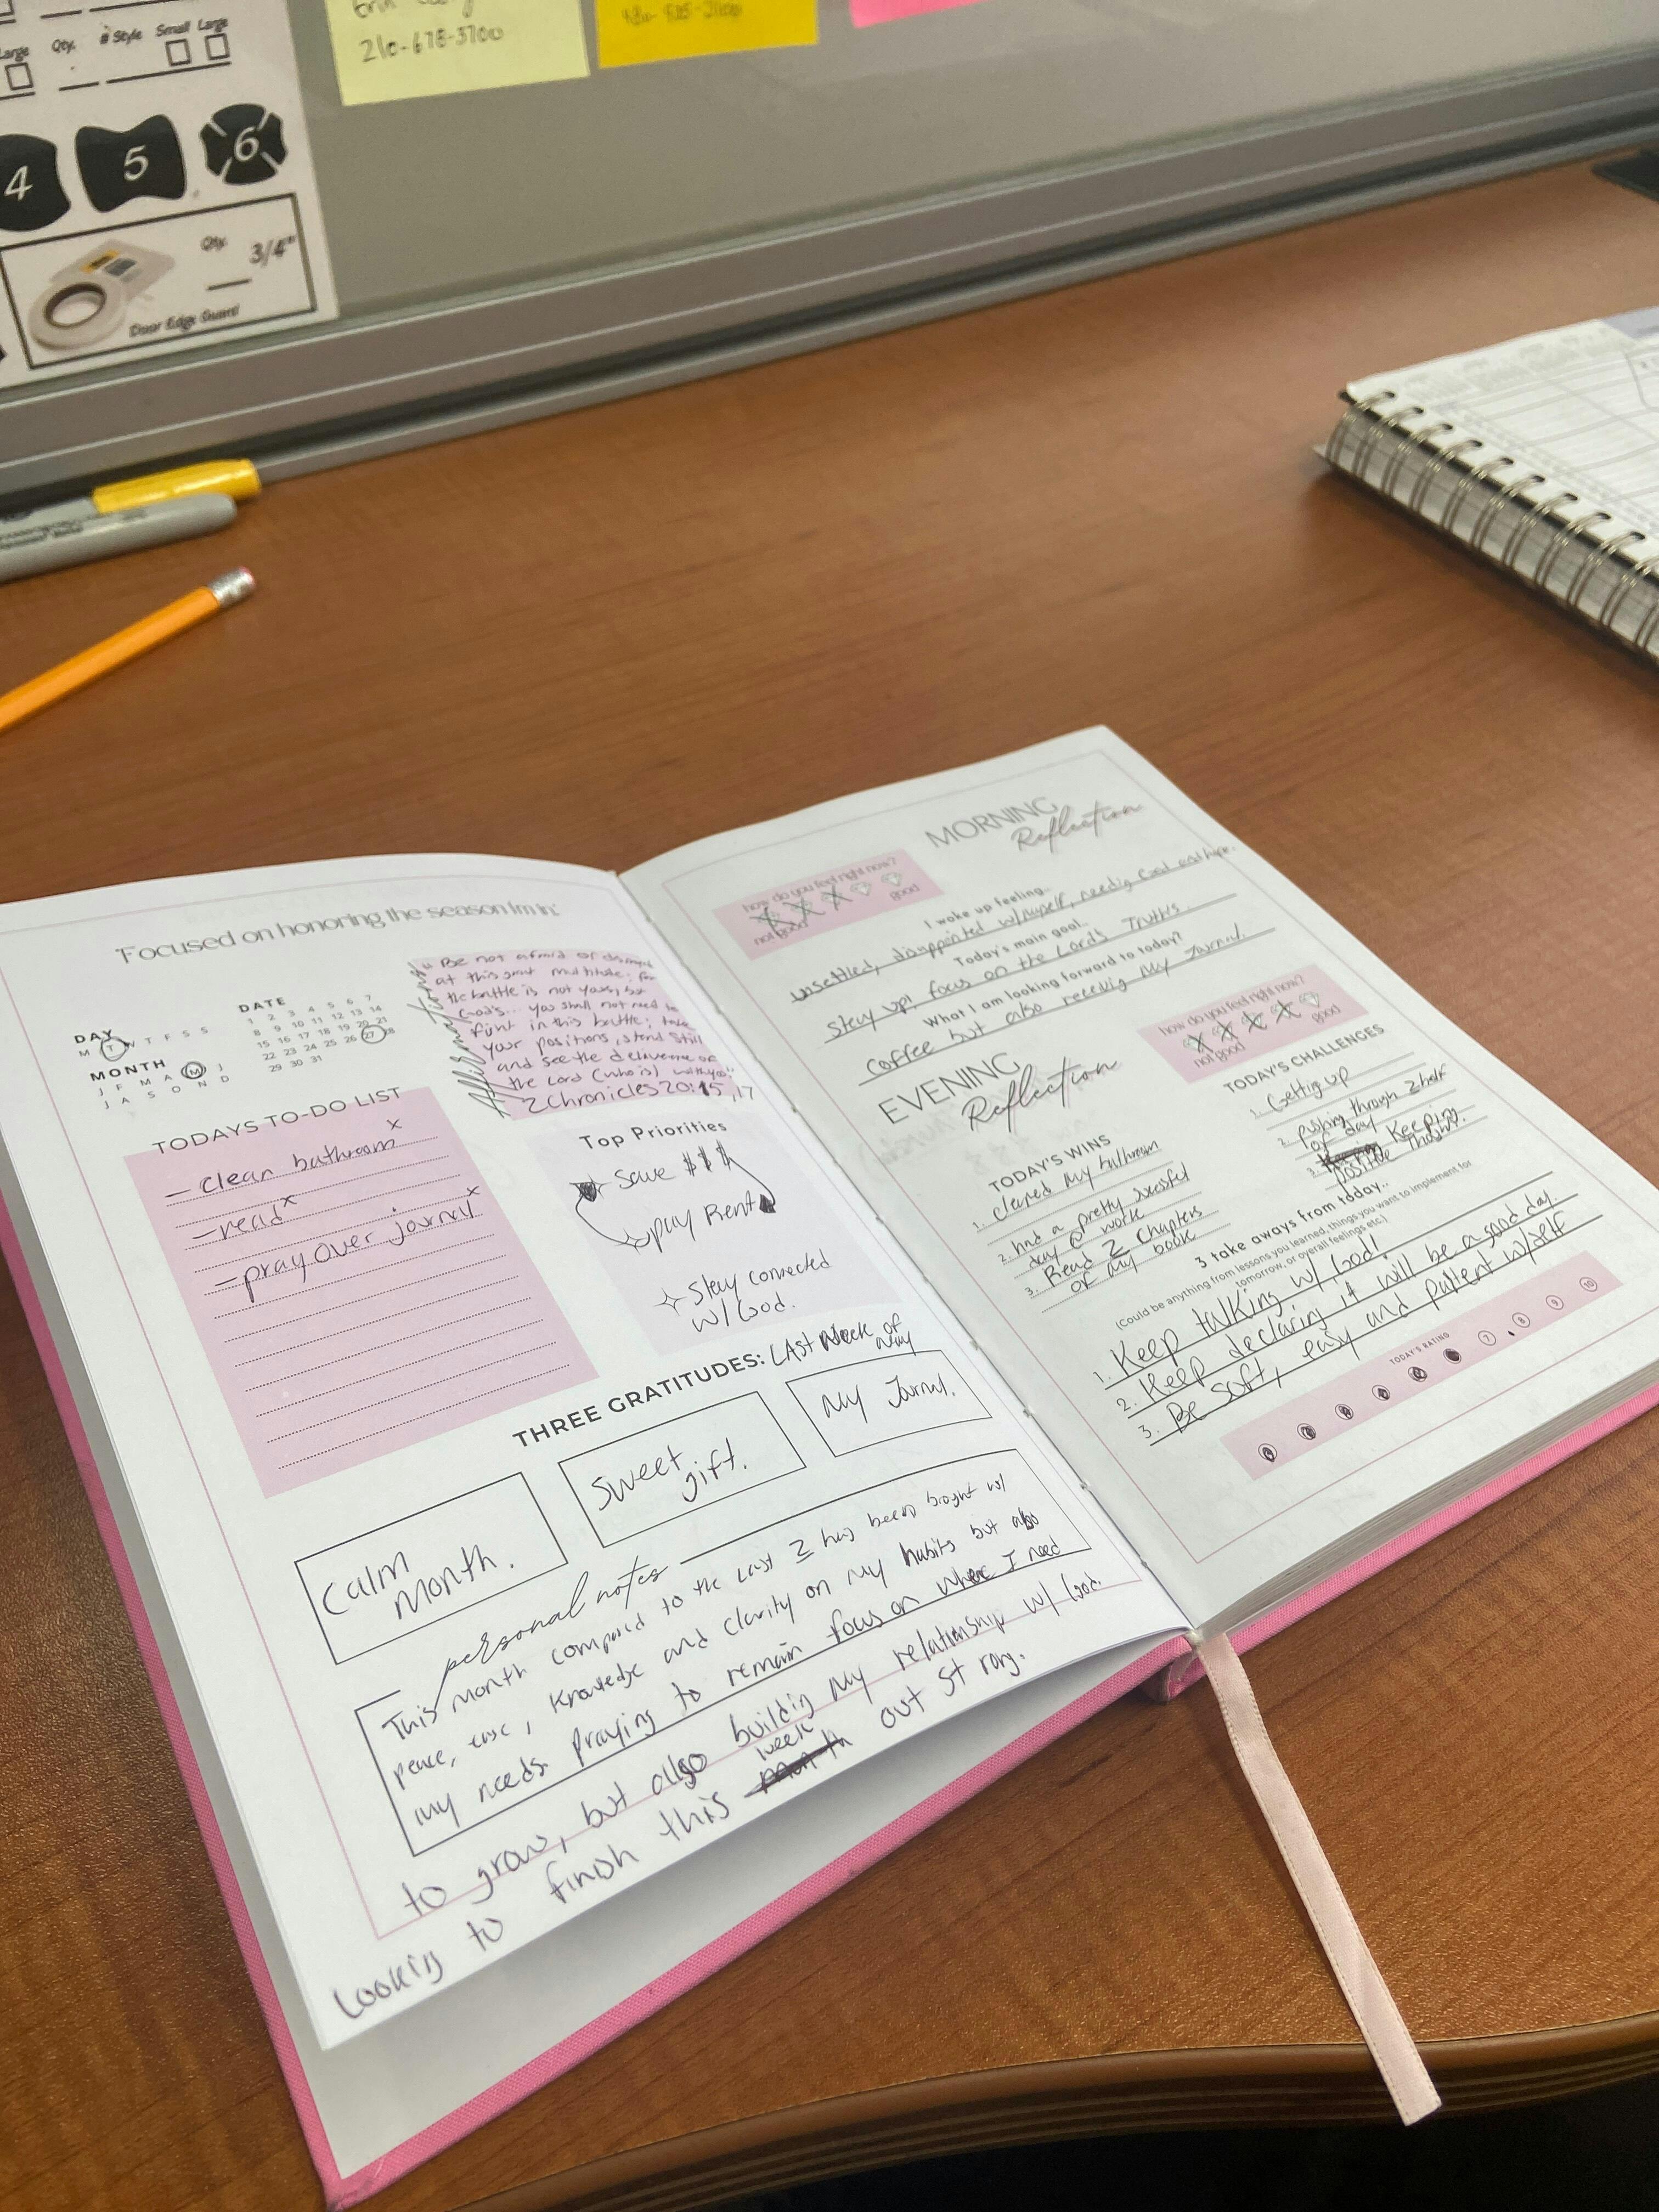 Large Qty. # Style Small Large
210-678-3700
4 5 6
Qty. 3/4"
Door Edge Guard
"Focused on honoring the season I'm in."
DAY
M T W T F S S
MONTH
J F M A M J
J A S O N D
DATE
1 2 3 4 5 6 7
8 9 10 11 12 13 14
15 16 17 18 19 20 21
22 23 24 25 26 27 28
29 30 31
Affirmations
"Be not afraid or dismayed
at this great multitude; for
the battle is not yours, but
God's... you shall not need to
fight in this battle; take
your positions, stand still
and see the deliverance of
the Lord (who is) with you"
2 Chronicles 20:15,17
TODAYS TO-DO LIST
- clean bathroom x
- read x
- pray over journal x
Top Priorities
Save $$$
pay Rent
Stay connected
w/ God.
THREE GRATITUDES: LAST Week of
May
Calm
Month.
Sweet
gift.
My Journl.
personal notes
This month compared to the last 2 has been broght w/
peace, ease, knowledge and clarity on my habits but also
my needs. Praying to remain focus on where I need
to grow, but also building my relationship w/ God.
Looking to finish this week out strong.
MORNING
Reflection
how do you feel right now?
not good good
I woke up feeling...
unsettled, disappointed w/myself, needig God
Today's main goal..
Stay up! focus on the Lords Truths.
What I am looking forward to today?
Coffee but also receivig my Journal.
EVENING
Reflection
how do you feel right now?
not good good
TODAY'S WINS
1. cleaned my bathroom
2. had a pretty
day @ work
3. Read 2 chapters
of my book
TODAY'S CHALLENGES
1. Getting up
2. pushing through 2 half
of day
3. Keeping
positive
3 take aways from today..
(Could be anything from lessons you learned, things you want to implement for
tomorrow, or overall feelings etc.)
1. Keep talking w/ God!
2. Keep declaring it will be a good day.
3. Be soft, easy and patient w/self
TODAY'S RATING
7 8 9 10